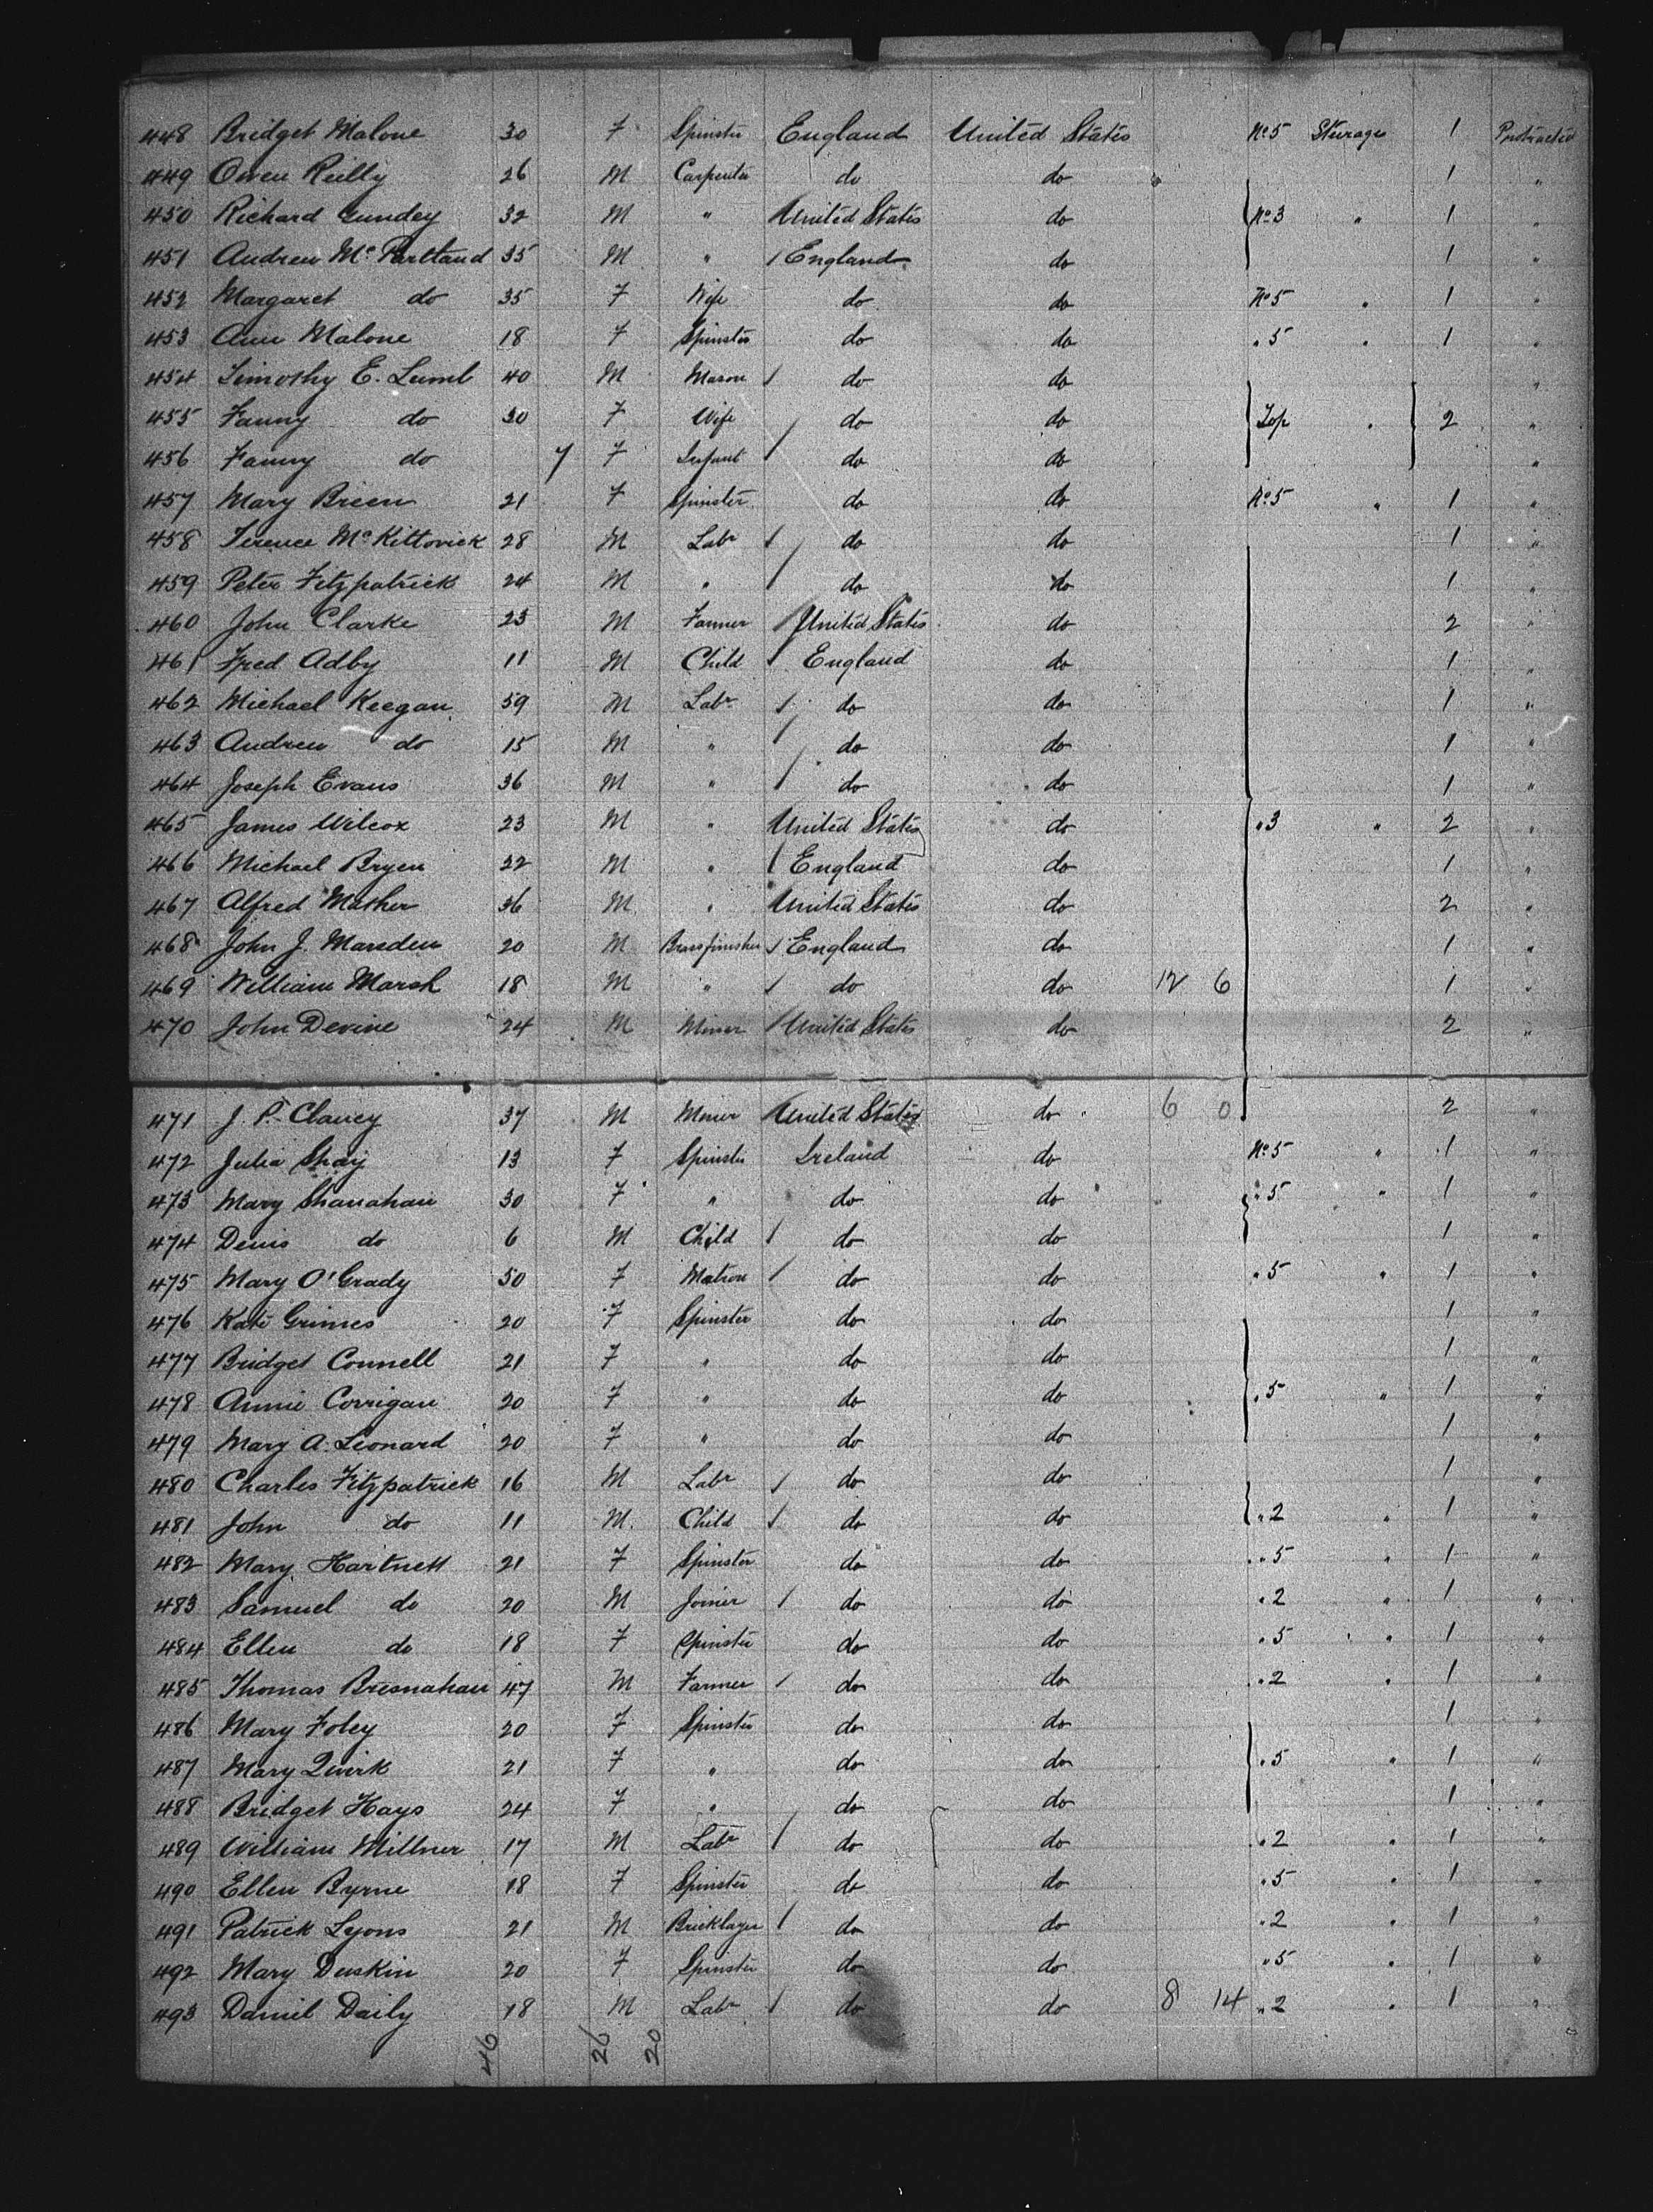 448 Bridget Malone 30 F Spinster England United States No 5 Steerage 1 Protracted
449 Owen Reilly 26 M Carpenter do do 1 "
450 Richard Gundey 32 M " United States do No 3 " 1 "
451 Andrew Mc Partland 35 M " England do 1 "
452 Margaret do 35 F Wife do do No 5 " 1 "
453 Ann Malone 18 F Spinster do do " 5 " 1 "
454 Timothy E. Lumb 40 M Mason do do "
455 Fanny do 30 F Wife do do Top " 2 "
456 Fanny do 7 F Infant do do "
457 Mary Breen 21 F Spinster do do No 5 " 1 "
458 Terence Mc Kittovick 28 M Labr do do 1 "
459 Peter Fitzpatrick 24 M " do do 1 "
460 John Clarke 23 M Farmer United States do 2 "
461 Fred Adby 11 M Child England do 1 "
462 Michael Keegan 59 M Labr do do 1 "
463 Andrew do 15 M " do do 1 "
464 Joseph Evans 36 M " do do 1 "
465 James Wilcox 23 M " United States do " 3 " 2 "
466 Michael Bryen 22 M " England do 1 "
467 Alfred Mather 36 M " United States do 2 "
468 John J. Marsden 20 M Brassfinisher England do 1 "
469 William Marsh 18 M " do do 12 6 1 "
470 John Devine 24 M Miner United States do 2 "
471 J. P. Clancy 37 M Miner United States do 6 0 2 "
472 Julia Shay 13 F Spinster Ireland do No 5 " 1 "
473 Mary Shanahan 30 F " do do " 5 " 1 "
474 Denis do 6 M Child do do 1 "
475 Mary O'Grady 50 F Matron do do " 5 " 1 "
476 Kate Grimes 20 F Spinster do do 1 "
477 Bridget Connell 21 F " do do 1 "
478 Annie Corrigan 20 F " do do " 5 " 1 "
479 Mary A. Leonard 20 F " do do 1 "
480 Charles Fitzpatrick 16 M Labr do do 1 "
481 John do 11 M Child do do " 2 " 1 "
482 Mary Hartnett 21 F Spinster do do " 5 " 1 "
483 Samuel do 20 M Joiner do do " 2 " 1 "
484 Ellen do 18 F Spinster do do " 5 " 1 "
485 Thomas Bresnahan 47 M Farmer do do " 2 " 1 "
486 Mary Foley 20 F Spinster do do 1 "
487 Mary Quirk 21 F " do do " 5 " 1 "
488 Bridget Hays 24 F " do do 1 "
489 William Millner 17 M Labr do do " 2 " 1 "
490 Ellen Byrne 18 F Spinster do do " 5 " 1 "
491 Patrick Lyons 21 M Bricklayer do do " 2 " 1 "
492 Mary Duskin 20 F Spinster do do " 5 " 1 "
493 Daniel Daily 18 M Labr do do 8 14 " 2 " 1 "
46 26 20